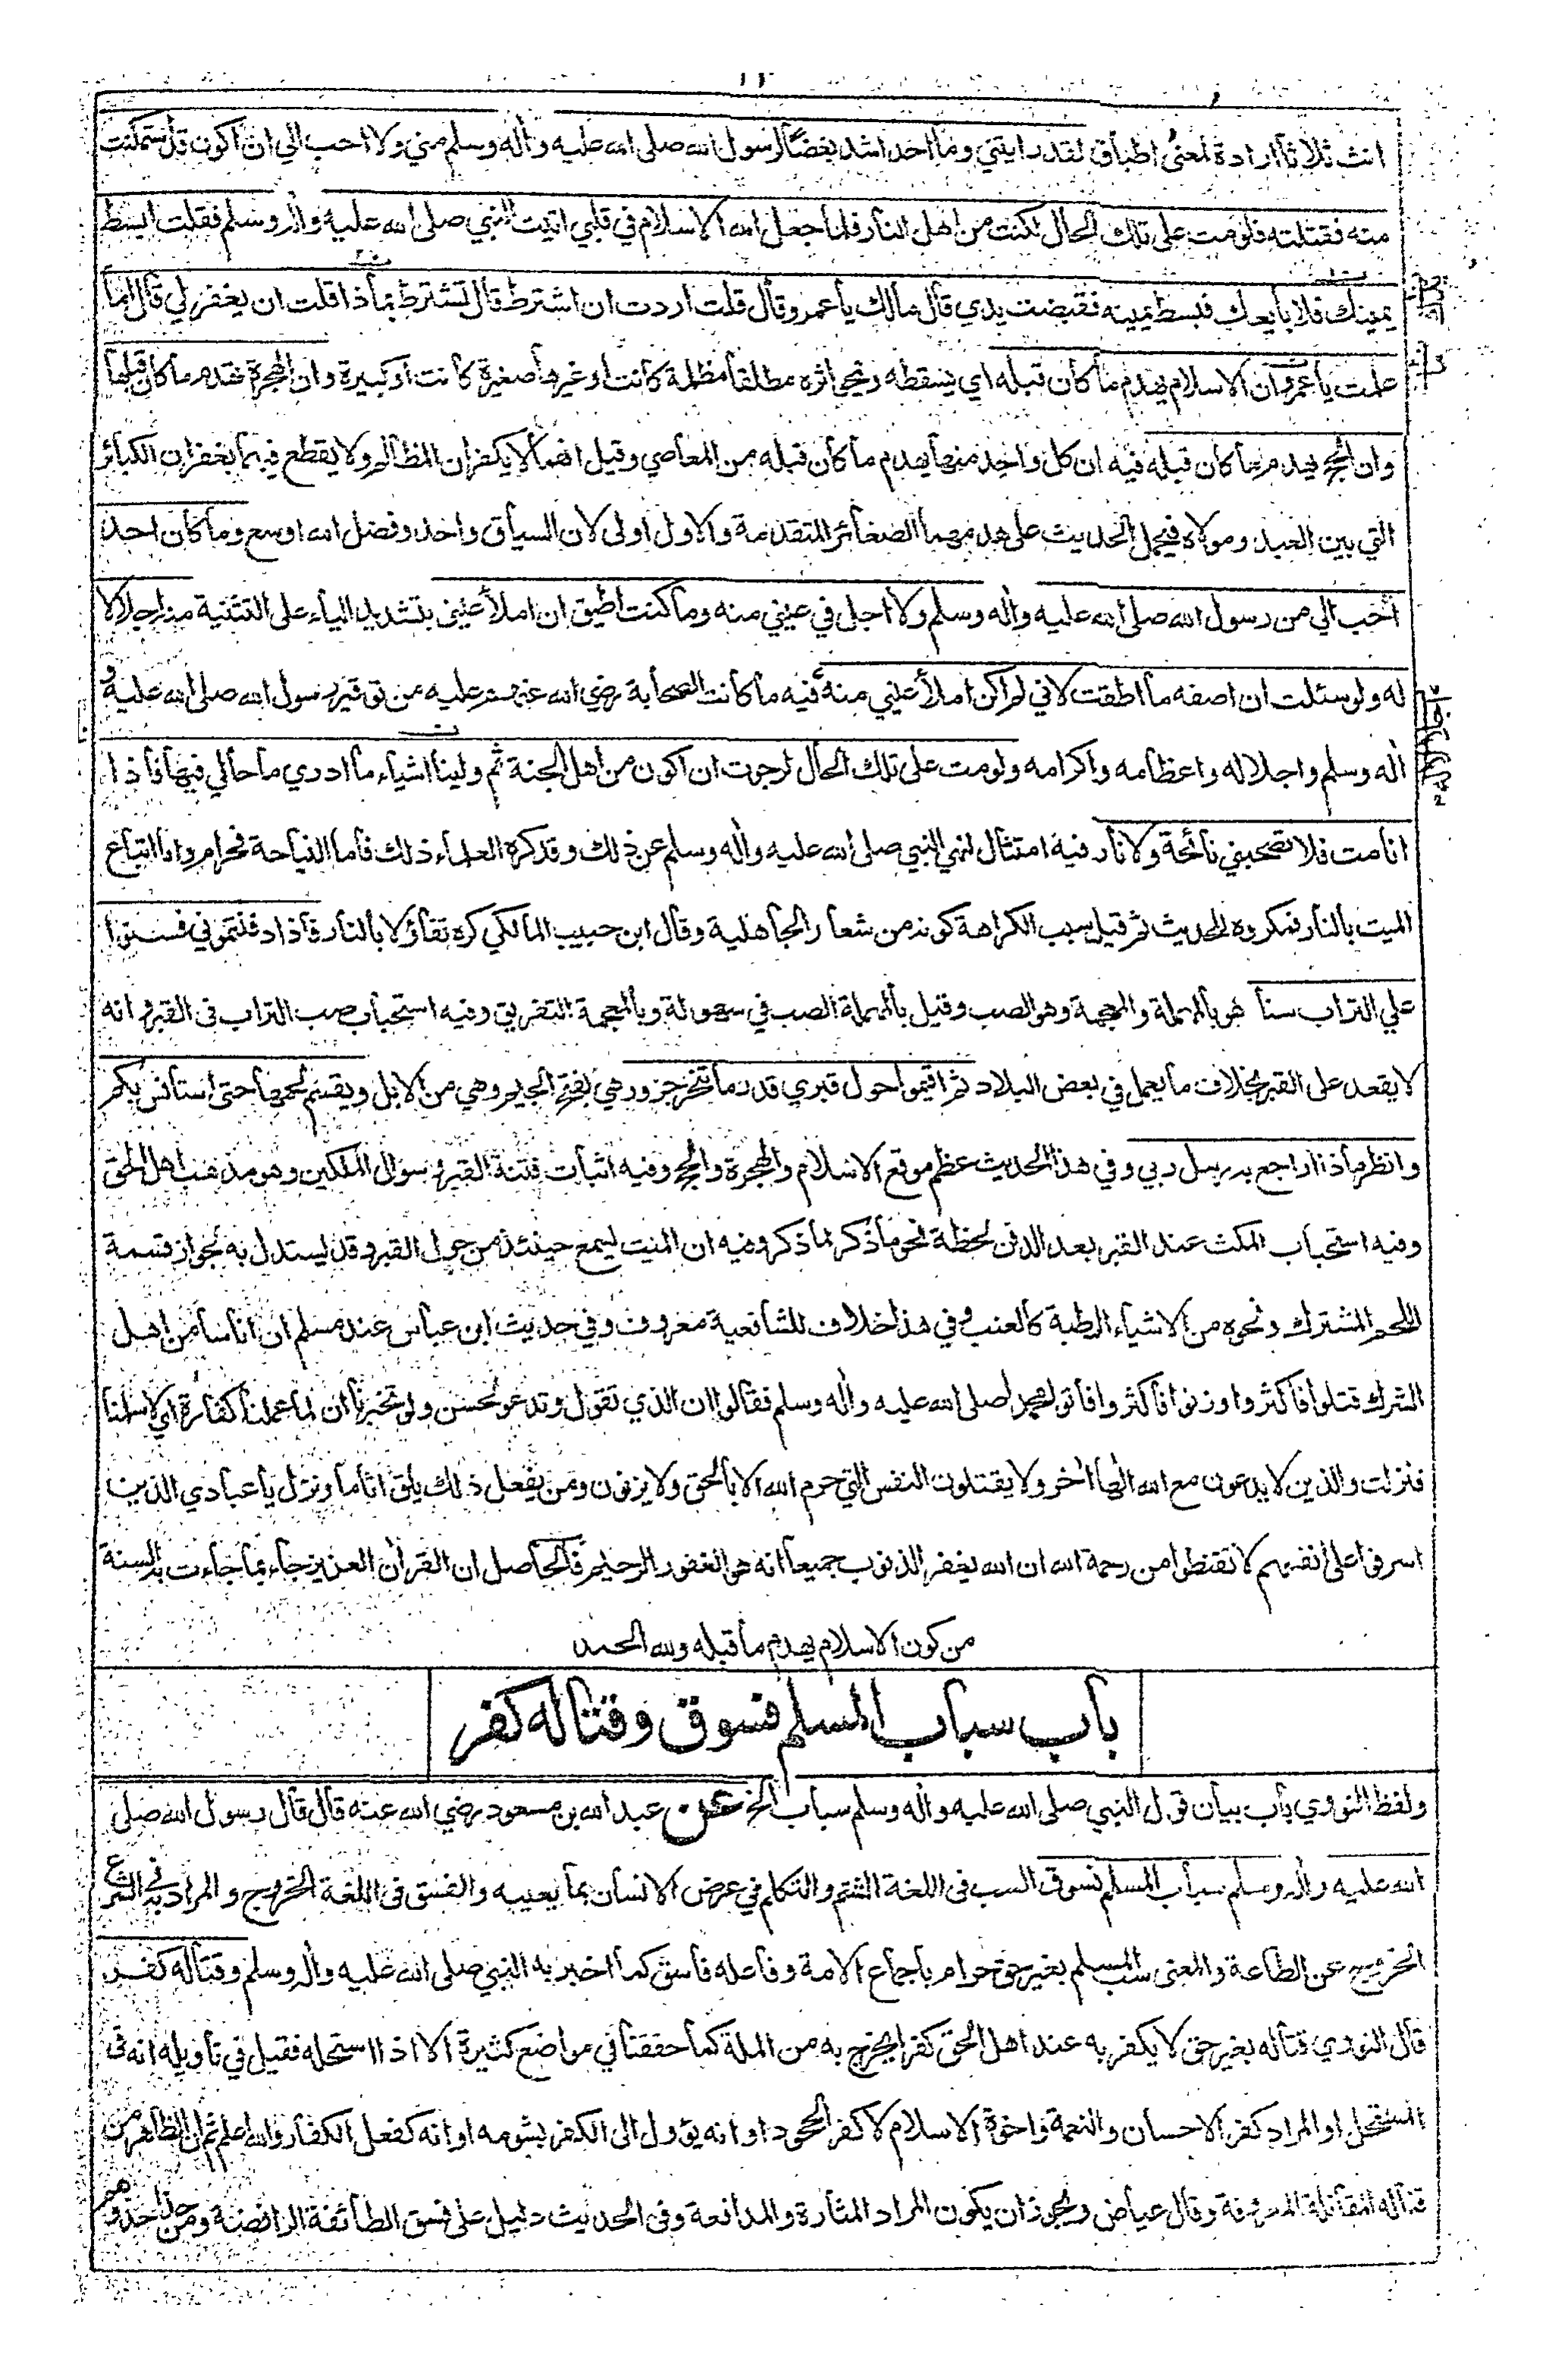 انث ثلاثا ارادة لمعنى اطباق لقد رايتني وما احد اشد بغضا لرسول الله صلى الله عليه واله وسلم مني ولا احب الي ان اكون قد استمكنت
منه فقتلته فلو مت على تلك الحال لكنت من اهل النار فلما جعل الله الاسلام في قلبي اتيت النبي صلى الله عليه واله وسلم فقلت ابسط
يمينك فلا بايعك فبسط يمينه فقبضت يدي قال مالك يا عمرو قال قلت اردت ان اشترط قال تشترط بماذا قلت ان يغفر لي قال اما
علمت يا عمرو ان الاسلام يهدم ما كان قبله اي يسقطه ويمحي اثره مطلقا مظلمة كانت او غيرها صغيرة كانت او كبيرة وان الهجرة تهدم ما كان قبلها
وان الحج يهدم ما كان قبله فيه ان كل واحد منها يهدم ما كان قبله من المعاصي وقيل انهما لا يكفران المظالم ولا يقطع فيهما بغفران الكبائر
التي بين العبد ومولاه فيحمل الحديث على هدمهما الصغائر المتقدمة والاول اولى لان السياق واحد وفضل الله اوسع وما كان احد
احب الي من رسول الله صلى الله عليه واله وسلم ولا اجل في عيني منه وما كنت اطيق ان املأ عيني بتشديد الياء على التثنية منه اجلالا
له ولو سئلت ان اصفه ما اطقت لاني لم اكن املأ عيني منه فيه ما كانت الصحابة رضي الله عنهم عليه من توقير رسول الله صلى الله عليه و
اله وسلم واجلاله واعظامه واكرامه ولو مت على تلك الحال لرجوت ان اكون من اهل الجنة ثم ولينا اشياء ما ادري ما حالي فيها فاذا
انا مت فلا تصحبني نائحة ولا نار فيه امتثال لنهي النبي صلى الله عليه واله وسلم عن ذلك وقد كره العلماء ذلك فاما النياحة فحرام واما اتباع
الميت بالنار فمكروه للحديث ثم قيل سبب الكراهة كونه من شعار الجاهلية وقال ابن حبيب المالكي كره تفاؤلا بالنار فاذا دفنتموني فسنوا
علي التراب سنا هو بالمهملة والمعجمة وهو الصب وقيل بالمهملة الصب في سهولة وبالمعجمة التفريق وفيه استحباب صب التراب في القبر وانه
لا يقعد على القبر بخلاف ما يعمل في بعض البلاد ثم اقيموا حول قبري قدر ما تنحر جزور هي بفتح الجيم وهي من الابل ويقسم لحمها حتى استانس بكم
وانظر ماذا اراجع به رسل ربي وفي هذا الحديث عظم موقع الاسلام والهجرة والحج وفيه اثبات فتنة القبر وسؤال الملكين وهو مذهب اهل الحق
وفيه استحباب المكث عند القبر بعد الدفن لحظة نحو ما ذكر لما ذكر وفيه ان الميت يسمع حينئذ من حول القبر وقد يستدل به لجواز قسمة
اللحم المشترك ونحوه من الاشياء الرطبة كالعنب وفي هذا خلاف للشافعية معروف وفي حديث ابن عباس عند مسلم ان اناسا من اهل
الشرك قتلوا فاكثروا وزنوا فاكثروا فاتوا محمدا صلى الله عليه واله وسلم فقالوا ان الذي تقول وتدعو لحسن ولو تخبرنا ان لما عملنا كفارة اي لاسلمنا
فنزلت والذين لا يدعون مع الله الها اخر ولا يقتلون النفس التي حرم الله الا بالحق ولا يزنون ومن يفعل ذلك يلق اثاما ونزل يا عبادي الذين
اسرفوا على انفسهم لا تقنطوا من رحمة الله ان الله يغفر الذنوب جميعا انه هو الغفور الرحيم فالحاصل ان القران العزيز جاء بما جاءت به السنة
من كون الاسلام يهدم ما قبله ولله الحمد
باب سباب المسلم فسوق وقتاله كفر
ولفظ النووي باب بيان قول النبي صلى الله عليه واله وسلم سباب الخ عن عبد الله بن مسعود رضي الله عنه قال قال رسول الله صلى
الله عليه واله وسلم سباب المسلم فسوق السب في اللغة الشتم والتكلم في عرض الانسان بما يعيبه والفسق في اللغة الخروج والمراد به في الشرع
الخروج عن الطاعة والمعنى سب المسلم بغير حق حرام باجماع الامة وفاعله فاسق كما اخبر به النبي صلى الله عليه واله وسلم وقتاله كفر
قال النووي قتاله بغير حق لا يكفر به عند اهل الحق كفرا يخرج به من الملة كما حققنا في مواضع كثيرة الا اذا استحله فقيل في تاويله انه في
المستحل او المراد كفر الاحسان والنعمة واخوة الاسلام لا كفر الجحود او انه يؤول الى الكفر بشومه او انه كفعل الكفار والله اعلم ثم ان الظاهر من
قتاله المقاتلة المعروفة وقال عياض ويجوز ان يكون المراد المشارة والمدافعة وفي الحديث دليل على فسق الطائفة الرافضة ومن حذا حذوهم